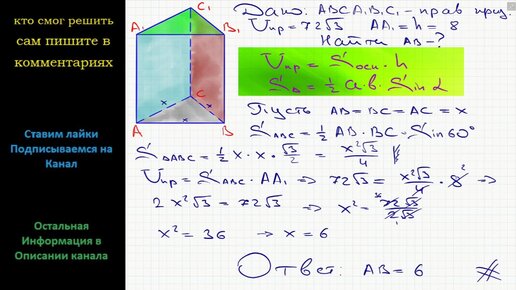 кто смог решить
сам пишите в
комментариях
Ставим лайки
Подписываемся на
Канал
Остальная
Информация в
Описании канала
A₁ C₁ B₁
C
x x
A x B
Дано: ABCA₁B₁C₁ - прав приз.
Vпр = 72√3 AA₁ = h = 8
Найти AB - ?
Vпр = Sосн · h
S∆ = 1/2 a·b·Sin α
Пусть AB = BC = AC = x
SABC = 1/2 AB · BC · Sin 60°
S∆ABC = 1/2 x · x · √3/2 = x²√3/4
Vпр = SABC · AA₁ ⇒ 72√3 = x²√3/4 · 8 2 ⇒
2x²√3 = 72√3 ⇒ x² = 36 72√3/2√3
x² = 36 → x = 6
Ответ: AB = 6